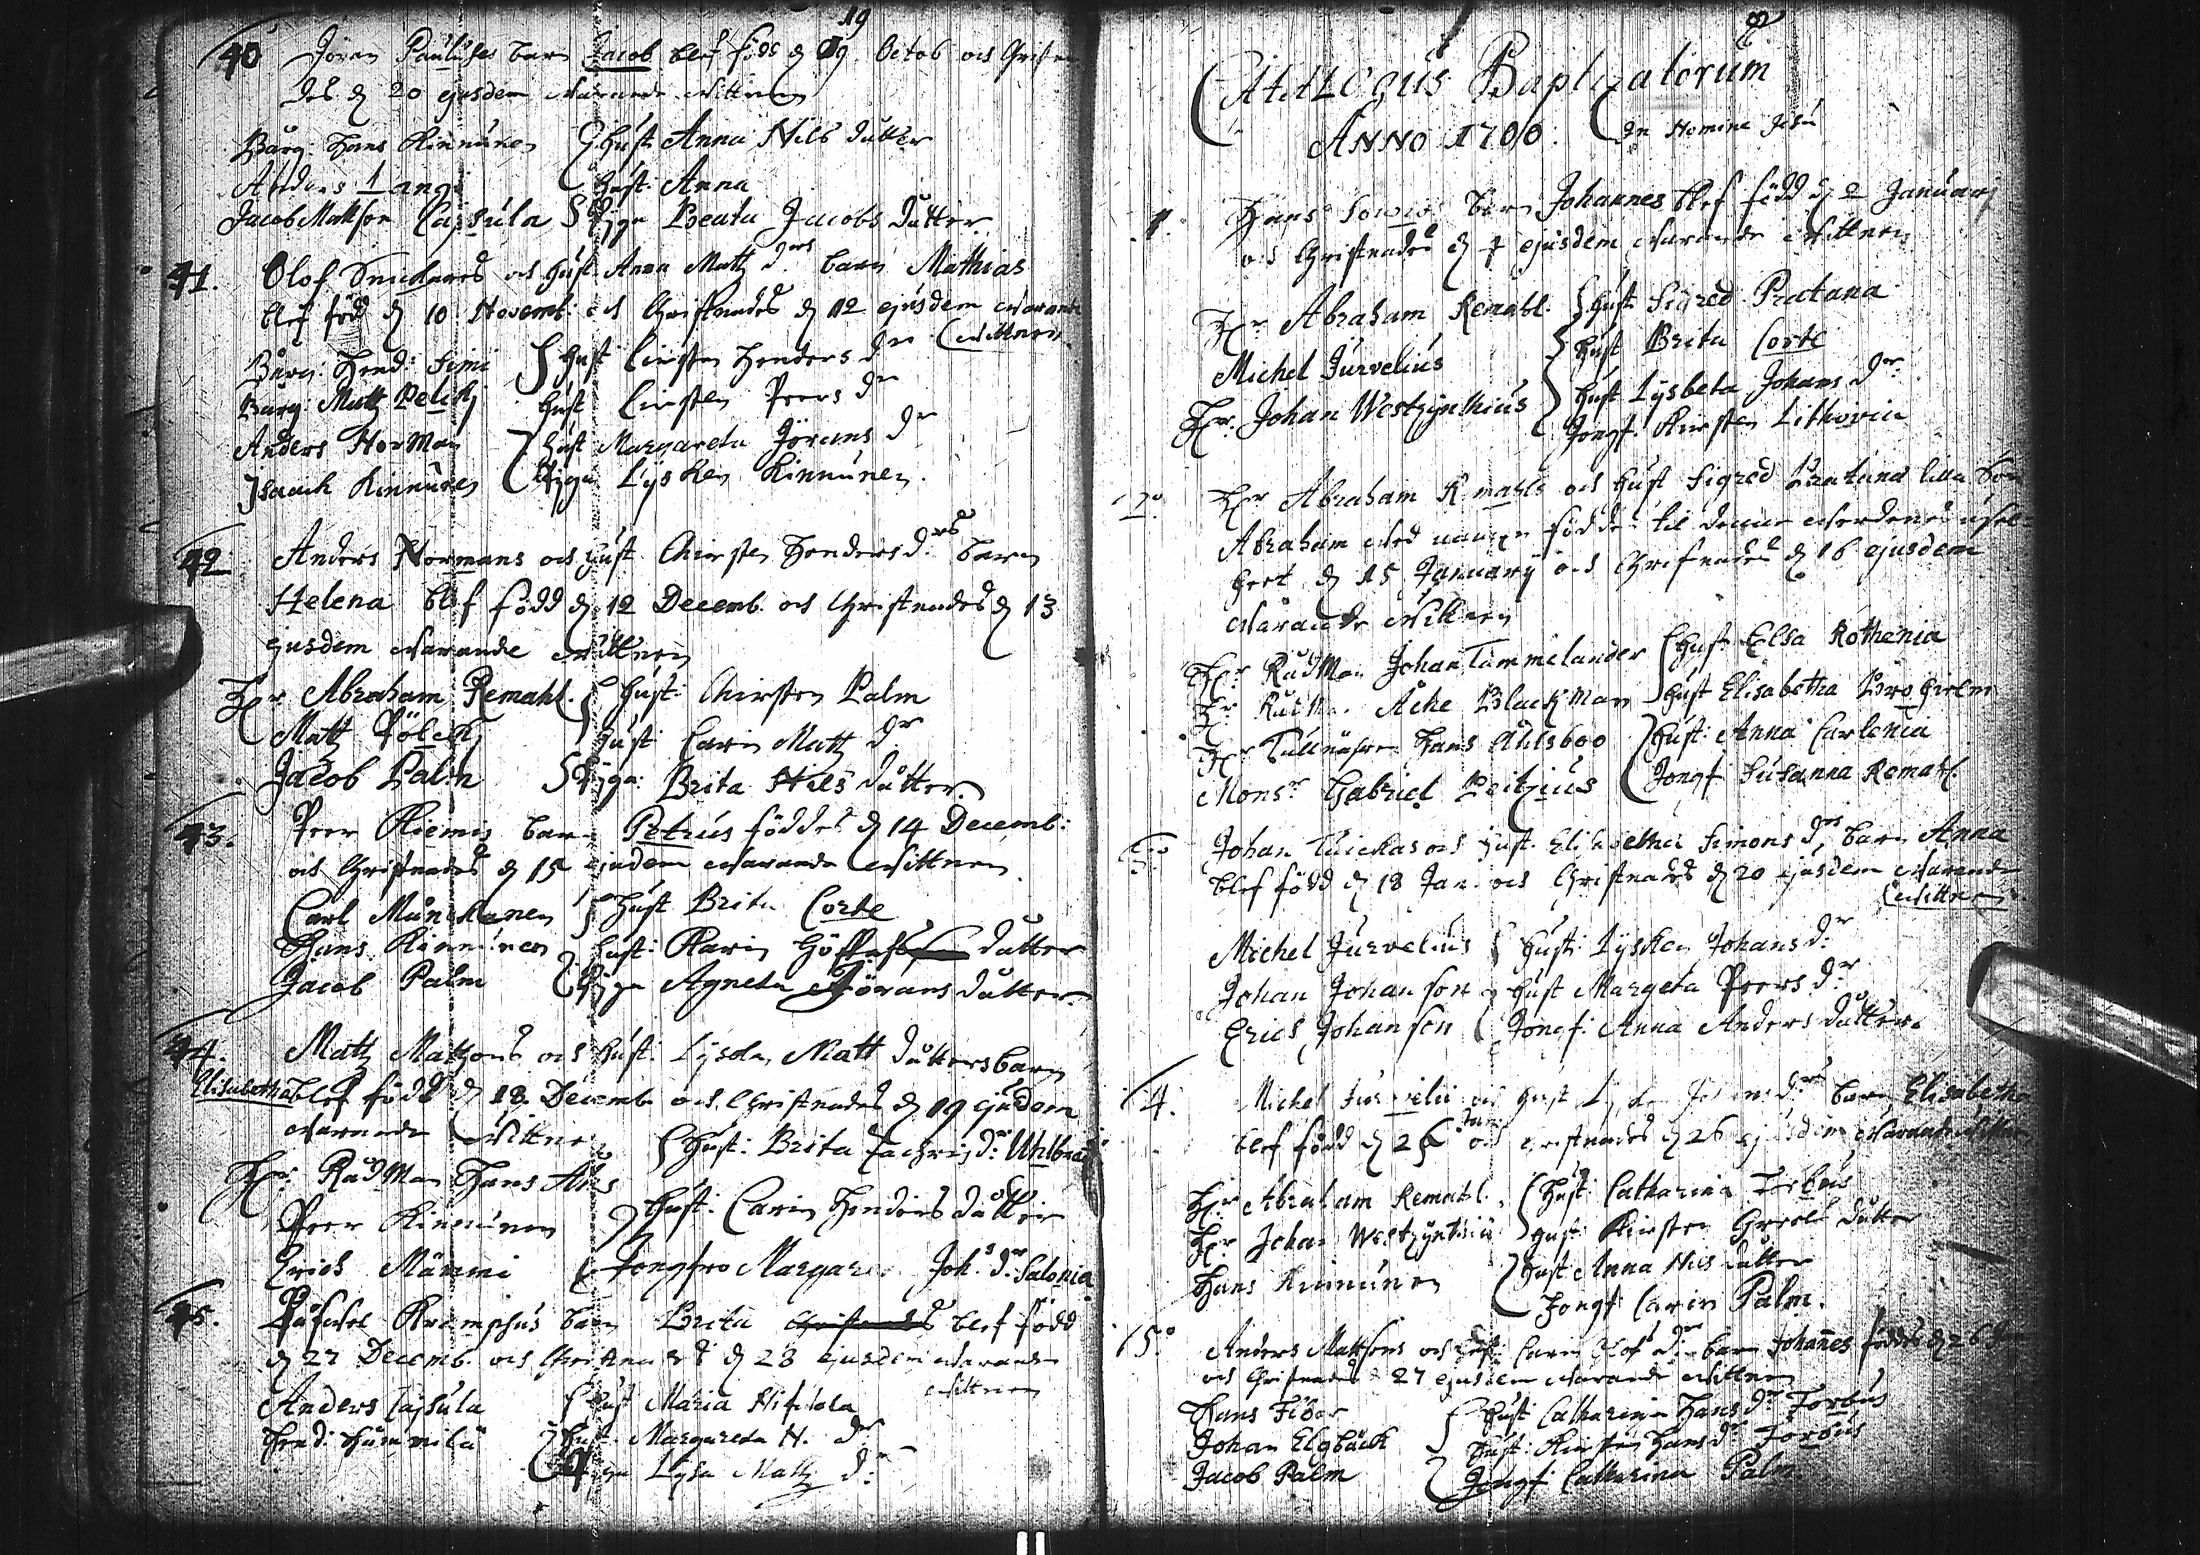 19
40 Jören Paulusses barn Jacob blef född d 19 Octob och Christn
des d 20 ejusdem warande wittnen
Burg: Hans Kinnunen Hust: Anna Nils dutter
Anders Lang Hust: Anna
Jacob Mattson Cajsula Piga Beata Jacobs dutter
41. Olof Snickares och Hust: Anna Matz drs barn Mathias
blef född d 10 Novemb: och Christnades d 12 ejusdem warande
wittnen
Burg: Hend: Simi Hust Cirsten Henders dr
Burg: Matz Pelck Hust Cirsten Peers dr
Anders Norman Hust Margareta Jörans dr
Isaach Kinnunen Piga Lysken Kinnunen.
42 Anders Normans och Hust Chirsten Henders drs barn
Helena blef född d 12 Decemb. och Christnades d 13
ejusdem warande wittnen
Hr Abraham Remahl. Hust: Chirsten Palm
Matz Pölck Hust: Carin Matz dr
Jacob Palm Piga: Brita Nils dutter.
43. Peer Kiemis barn Petrus föddes d 14 Decemb:
och Christnades d 15 ejudem warande wittnen
Carl Munckanen Hust Brita Corte
Hans Kinnunen Hust: Karin dutter
Jacob Palm Piga Agneta Jörans dutter
44. Matz Matzons och Hust: Lysda Matt dutters barn
Elisabetha blef född d 18. Decemb och Christnades d 19 ejudem
warande wittne Hust: Brita Zachris dr
Hr RådMan Hans Ahls
Peer Kinnunen Hust: Carin Henders dutter
Erich Mämmi Jongfro Margar Joh: dr Salonia
45. Påfwel Krampsus barn Brita blef född
d 27 Decemb. och Christnades d 28 ejusdem warande
wittnen
Anders Cajsula Hust Maria
Hend: Hust Margareta N. dr
Lysa Matz dr
Catalogus Baptizatorum
Anno 1700. In Nomine Jesu
1. Hans barn Johannes blef född d 2 Januarj
och Christnades d 7 ejusdem warande wittnen
Hr Abraham Remahl. Hust: Sigred Pratana
Michel Jurvelius Hust Brita Corte
Hr Johan Westzynthius Hust Lysbeta Johans dr
Jongf. Kirsten Lithovia
2. Hr Abraham Remahls och Hust Sigred Pratana lilla Son
Abraham wed namn föddes til denne werdenes usel
heet d 15 January och Christnades d 16 ejusdem
warande wittnen
Hr RådMan Johan Tammelander Hust Elsa Rothenia
Hr Åke Blackman Hust Elisabetha
Hr Tullnären Hans Ahlsboo Hust: Anna Carlenia
Monsr Gabriel Peitzius Jongf Susanna Remahl.
3. Johan och Hust. Elisabetha Simons drs barn Anna
blef född d 18 Jan. och Christnades d 20 ejusdem warande
wittnen
Michel Jurvelius Hust: Lysken Johans dr
Johan Johanson Hust Margeta Peers dr
Erich Johanson Jongf: Anna Anders dutter.
4. Michel Jurvelii och Hust drs barn Elisabetha
blef född d 25 Jan: och Christnades d 26 ejusdem warande wittnen
Hr Abraham Remahl. Hust: Catharina Forbus
Hr Johan Westzynthiu Hust Kirsten Greels dutter
Hans Kinnunen Hust Anna Nils dutter
Jongf Carin Palm.
5. Anders Mattsons och Hust: Carin Olof drs barn Johannes föddes d 26
och Christnades 27 ejusdem warande wittnen
Hans Hust: Catharina Hans dr Forbus
Johan Elgbäck Hust: Kirsten Hans dr Forbus
Jacob Palm Jongf: Catharina Palm.